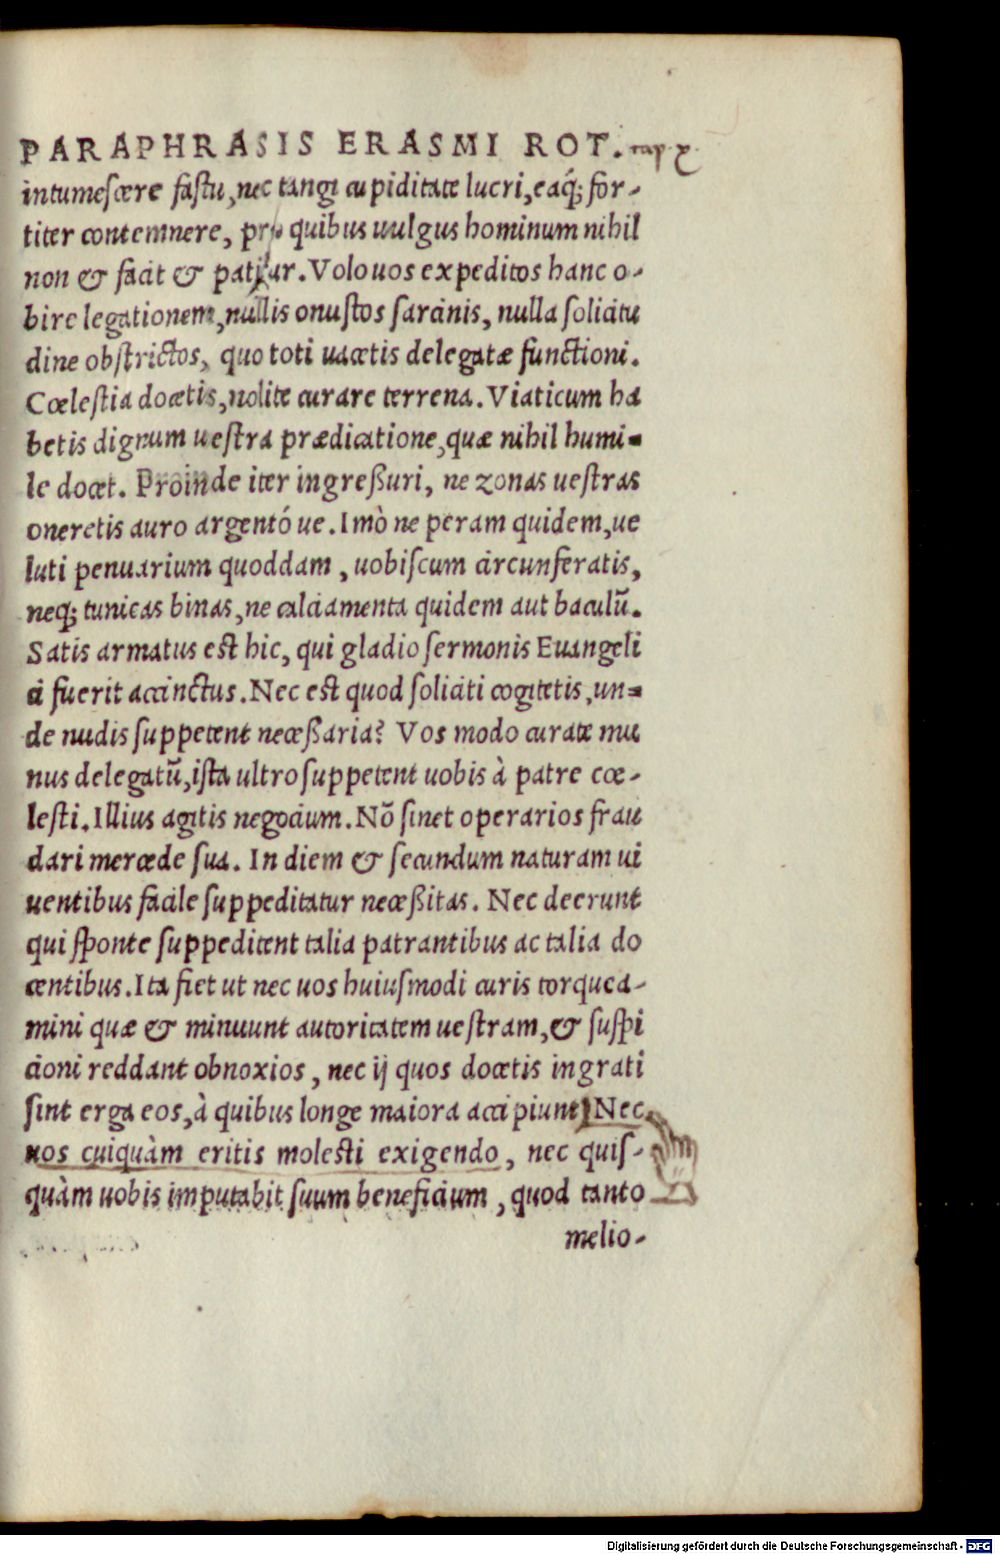 PARAPHRASIS ERASMI ROT.
intumescere fastu, nec tangi cupiditate lucri, eaq́; for-
titer contemnere, pro quibus uulgus hominum nihil
non & facit & patitur. Volo uos expeditos hanc o-
bire legationem, nullis onustos sarcinis, nulla solicitu
dine obstrictos, quo toti uacetis delegatæ functioni.
Cœlestia docetis, nolite curare terrena. Viaticum ha
betis dignum uestra prædicatione, quæ nihil humi-
le docet. Proinde iter ingreßuri, ne zonas uestras
oneretis auro argentó ue. Imò ne peram quidem, ue
luti penuarium quoddam, uobiscum circunferatis,
neq; tunicas binas, ne calciamenta quidem aut baculũ.
Satis armatus est hic, qui gladio sermonis Euangeli
ci fuerit accinctus. Nec est quod soliciti cogitetis, un-
de nudis suppetent neceßaria? Vos modo curate mu
nus delegatũ, ista ultro suppetent uobis à patre cœ-
lesti. Illius agitis negocium. Nõ sinet operarios frau
dari mercede sua. In diem & secundum naturam ui
uentibus facile suppeditatur neceßitas. Nec deerunt
qui sponte suppeditent talia patrantibus ac talia do
centibus. Ita fiet ut nec uos huiusmodi curis torquea-
mini quæ & minuunt autoritatem uestram, & suspi
cioni reddant obnoxios, nec ij quos docetis ingrati
sint erga eos, à quibus longe maiora accipiunt. Nec
uos cuiquàm eritis molesti exigendo, nec quis-
quàm uobis imputabit suum beneficium, quod tanto
melio-
Digitalisierung gefördert durch die Deutsche Forschungsgemeinschaft - DFG